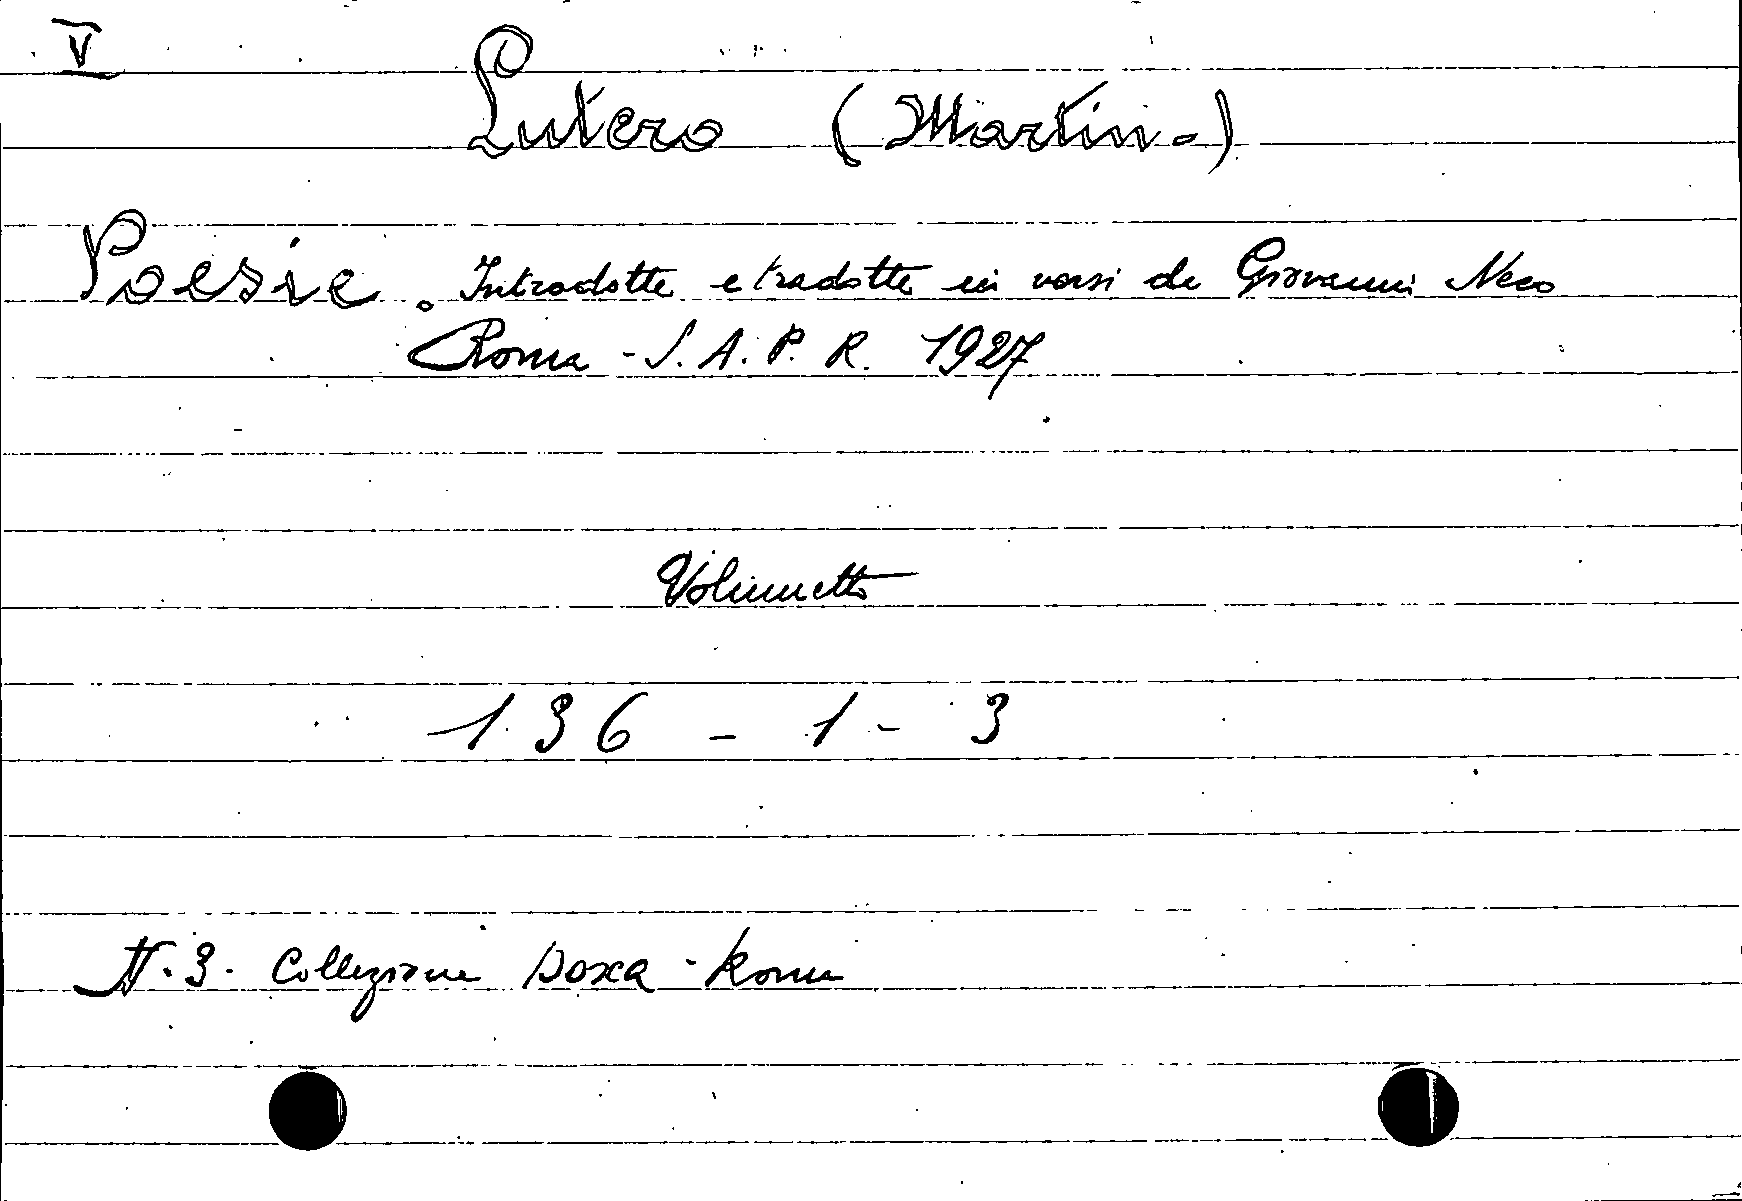 V
Lutero (Martin-)
Poesie. Introdotte e tradotte in versi da Giovanni Necco
Roma - S. A. P. R. 1927
Volumetto
136 - 1 - 3
N. 3. Collezione Doxa - Roma